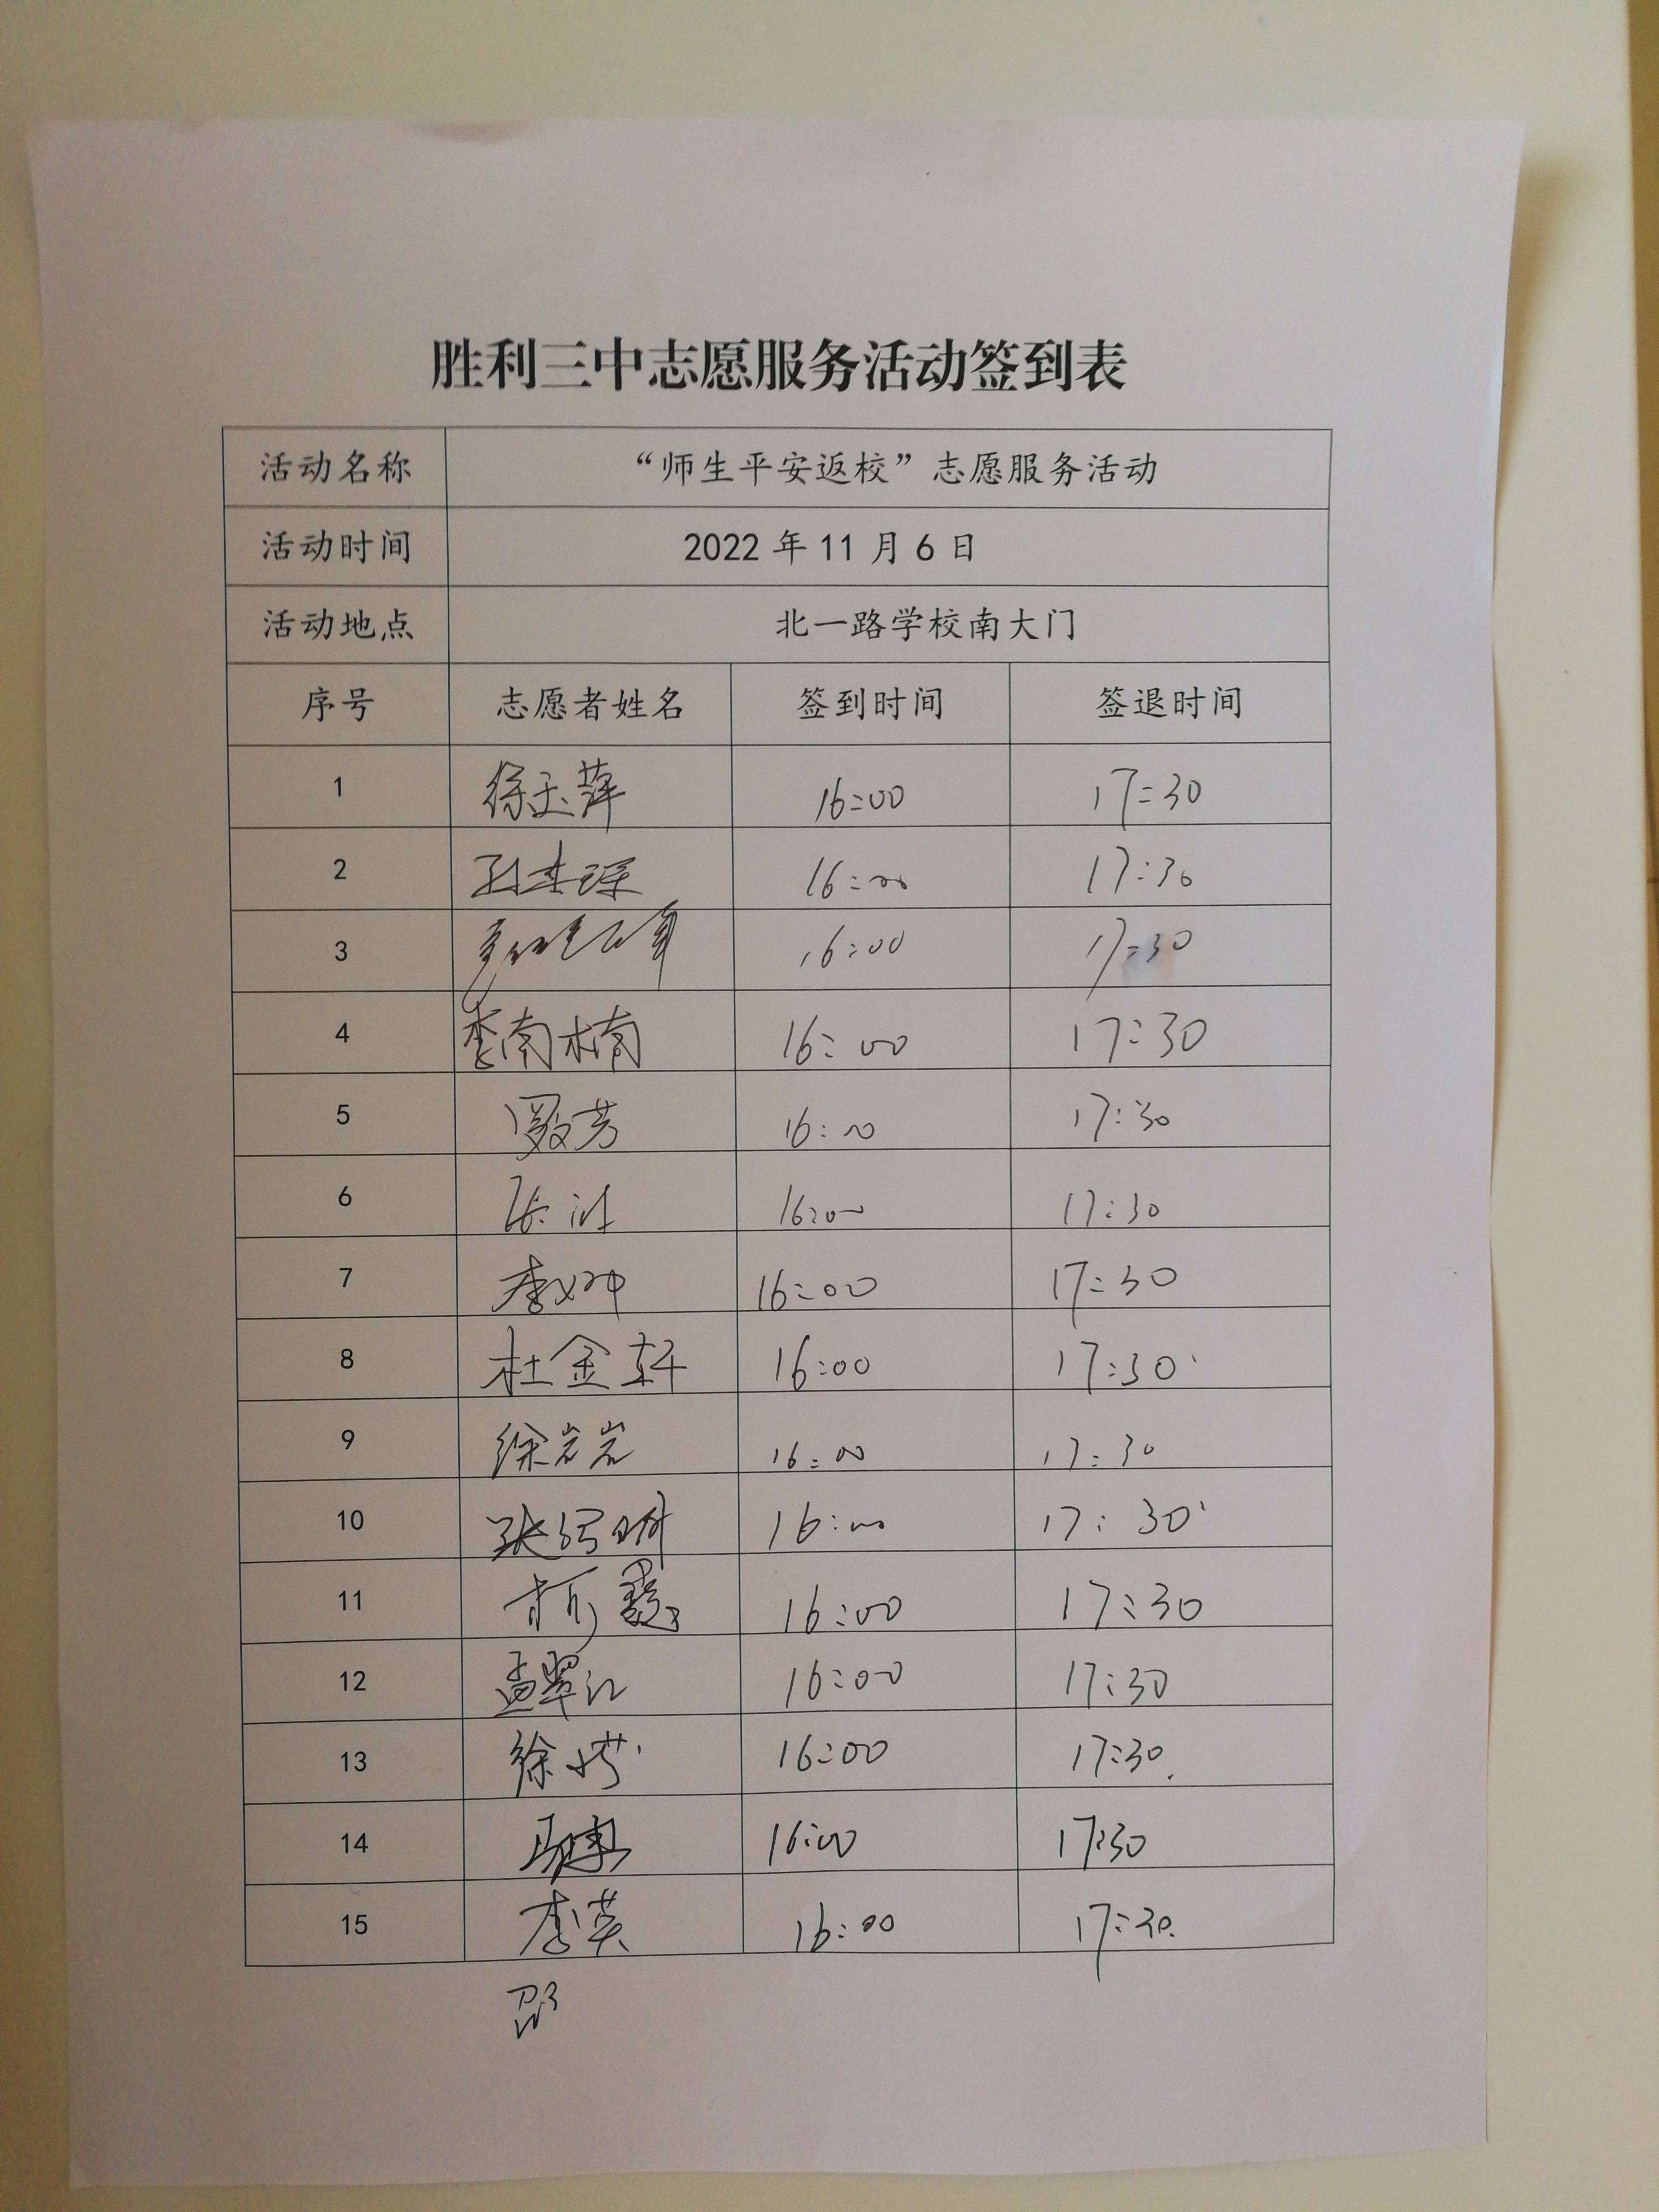 胜利三中志愿服务活动签到表
活动名称 “师生平安返校”志愿服务活动
活动时间 2022 年 11 月 6 日
活动地点 北一路学校南大门
序号 志愿者姓名 签到时间 签退时间
1 徐玉萍 16:00 17:30
2 16:00 17:30
3 16:00 17:30
4 李南楠 16:00 17:30
5 16:00 17:30
6 16:00 17:30
7 16:00 17:30
8 杜金轩 16:00 17:30
9 徐岩岩 16:00 17:30
10 16:00 17:30
11 16:00 17:30
12 孟翠红 16:00 17:30
13 16:00 17:30
14 16:00 17:30
15 李英 16:00 17:30